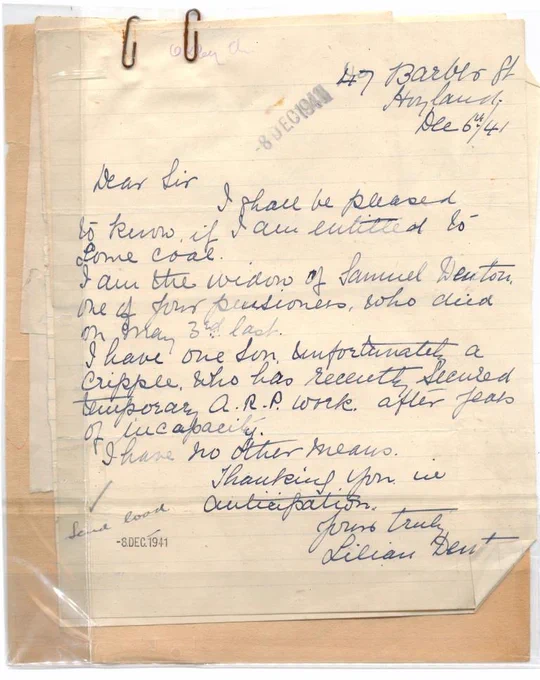 47 Barber St
Hoyland.
Dec 6th/41
-8 DEC 1941
Dear Sir
I shall be pleased
to know, if I am entitled to
some coal.
I am the widow of Samuel Denton,
one of your pensioners, who died
on May 3rd last.
I have one son, unfortunately a
cripple, who has recently secured
temporary A.R.P. work. after years
of incapacity.
I have no other means.
Thanking you in
anticipation.
Yours truly
Lilian Dent
Send load
-8 DEC 1941